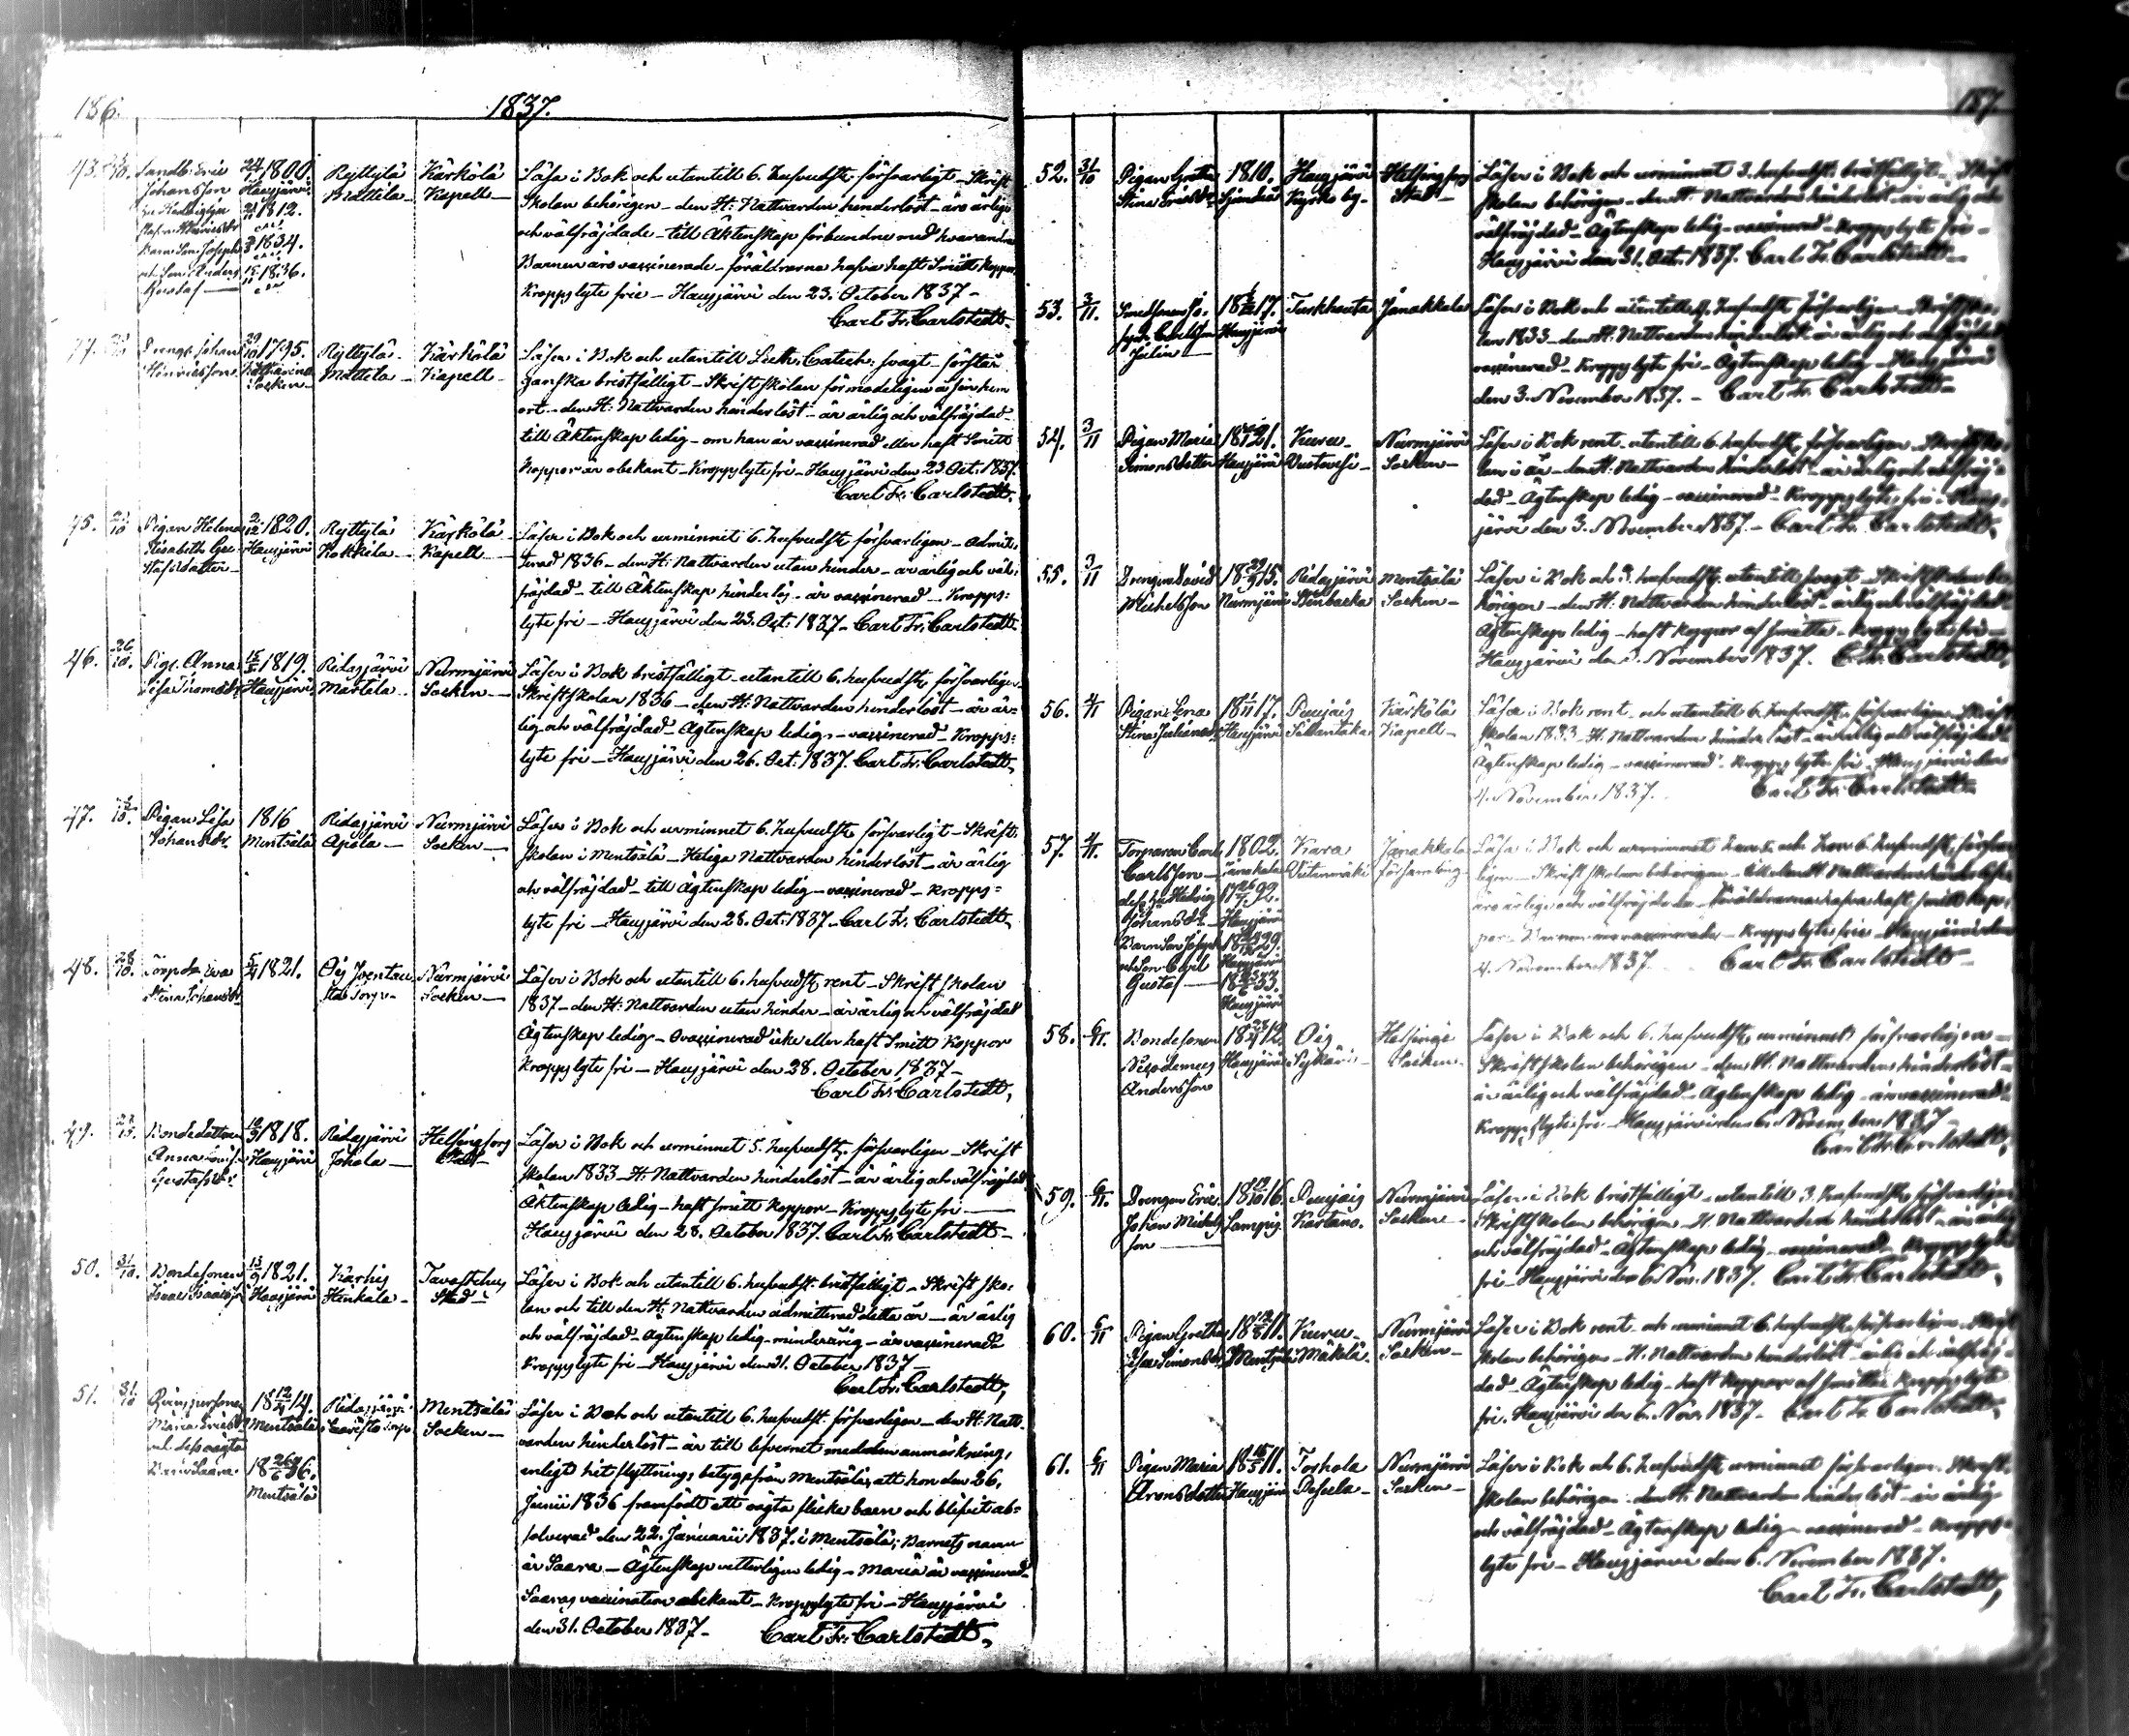 186.
1837.
43. 23/10. Landb: Eric 24/1 1800. Ryttylä Kärkölä
Johansson Hausjärvi Mattila Kapell
21/11 1812.
1834.
Barn: Son Joseph
och Son Anders 1836.
Gustaf
Läsa i Bok och utantill 6. hufvudst. försvarligt – Skrift
Skolan behörigen – den H: Nattvarden hinderlöst – äro ärlige
och välfrejdade – till Äktenskap förbundne med hvarandra
Barnen äro vaccinerade – föräldrarna hafva haft Smitt koppor,
Kroppslyte frie – Hausjärvi den 23. October 1837 –
Carl Fr. Carlstedt.
44. Drengn Johan 29/10 1795. Ryttylä Kärkölä
Hinricsson Socken Mattila Kapell
Läser i Bok och utantill Luth: Catech: svagt – förstår
ganska bristfälligt – Skriftskolan förmodeligen å sin hem
ort. – den H: Nattvarden hinderlöst – är ärlig och välfrejdad
till Äktenskap ledig – om han är vaccinerad eller haft Smitt
koppor är obekant – Kroppslyte fri – Hausjärvi den 23 Oct: 1837.
Carl Fr: Carlstedt.
45. 23/10 Pigan Helena 2/12 1820. Ryttylä Kärkölä
Elisabeth Gu Hausjärvi Kokkila Kapell
stafsdotter
Läser i Bok och urminnet 6. hufvudst. försvarligen – admit:
terad 1836 – den H: Nattvarden utan hinder – är ärlig och väl:
frejdad – till Äktenskap hinderlös – är vaccinerad – Kropps:
lyte fri – Hausjärvi den 23. Oct: 1837 – Carl Fr. Carlstedt.
46. 26/10. Pig. Anna 15/5 1819. Ridasjärvi Nurmijärvi
Lisa Thomasdr Hausjärvi Martila Socken
Läser i Bok bristfälligt – utantill 6. hufvudst. försvarligen
Skriftskolan 1836 – den H: Nattvarden hinderlöst – är är=
lig och välfrejdad – Ägtenskap ledig – vaccinerad – Kropps:
lyte fri – Hausjärvi den 26. Oct: 1837. Carl Fr. Carlstedt,
47. Pigan Lisa 1816 Ridasjärvi Nurmijärvi
Johansdr. Mentsälä Apola Socken
Läser i Bok och urminnet 6. hufvudst. försvarligt – Skrift
skolan i Mentsälä – Heliga Nattvarden hinderlöst – är ärlig
och välfrejdad – till Ägtenskap ledig – vaccinerad – Kropps=
lyte fri – Hausjärvi den 28. Oct: 1837 – Carl Fr. Carlstedt,
48. 28/10. Eva 5/4 1821. Oij Nurmijärvi
Stina Johansdr Socken
Läser i Bok och utantill 6. hufvudst. rent – Skriftskolan
1837 – den H: Nattvarden utan hinder – är ärlig och välfrejdad
Ägtenskap ledig – Ovaccinerad icke eller haft Smitt Koppor
Kroppslyte fri – Hausjärvi den 28. October 1837 –
Carl Fr. Carlstedt,
49. Bondedottren 1818. Ridasjärvi Helsingfors
Anna Hausjärvi Johola Stad
Gustafsdr.
Läser i Bok och urminnet 5. hufvudst. försvarligen – Skrift
skolan 1833 – H: Nattvarden hinderlöst – är ärlig och välfrejdad
Äktenskap ledig – haft smitt koppor – Kroppslyte fri –
Hausjärvi den 28. October 1837. Carl Fr. Carlstedt –
50. 31/10. Bondesonen 13/9 1821. Karhis Tavastehus
Isaac Isaacss: Hausjärvi Hinkala Stad
Läser i Bok och utantill 6. hufvudst. bristfälligt – Skriftsko:
lan och till den H: Nattvarden admitterad detta år – är ärlig
och välfrejdad – Ägtenskap ledig – minderårig – är vaccinerad
Kroppslyte fri – Hausjärvi den 31. October 1837 –
Carl Fr. Carlstedt,
51. 31/10 18 12/4 14. Ridasjärvi Mentsälä
Maria Ericsdr Mentsälä Socken
och dess oägta
Barn Saara. 18 26/6 36.
Mentsälä
Läser i Bok och utantill 6. hufvudst. försvarligen – den H: Natt:
varden hinderlöst – är till lefvernet med den anmärkning,
enligt hitflyttnings betyg från Mentsälä, att hon den 26.
Junii 1836 framfödt ett oägta flicke barn och blifvit ab=
solverad den 22. Januarii 1837. i Mentsälä; Barnets namn
är Saara – Ägtenskap vetterligen ledig – Maria är vaccinerad
Saaras vaccination obekant – Kroppslyte fri – Hausjärvi
den 31. October 1837 – Carl Fr: Carlstedt,
187.
52. 31/10 Pigan Greta 1810. Hausjärvi Helsingfors
Stina Ericsdr Kyrko by Stad
Läser i Bok och urminnet 3. hufvudst. bristfälligt – Skrift
skolan behörigen – den H: Nattvarden hinderlöst – är ärlig och
välfrejdad – Ägtenskap ledig – vaccinerad – Kroppslyte fri –
Hausjärvi den 31. Oct: 1837. Carl Fr. Carlstedt –
53. 3/11. Smedsonen Jo: 1817. Turkhauta Janakkala
seph Carlsson Hausjärvi
Julin
Läser i Bok och utantill hufvudst. försvarligen – Skriftsko:
lan 1833 – den H: Nattvarden hinderlöst – är ärlig och välfrejdad
vaccinerad – Kroppslyte fri – Ägtenskap ledig – Hausjärvi
den 3. November 1837. – Carl Fr. Carlstedt –
54. 3/11 Pigan Maria 1821. Kuru Nurmijärvi
Simonsdotter Hausjärvi Socken
Läser i Bok rent – utantill 6. hufvudst. försvarligen – Skriftsko:
lan i år – den H: Nattvarden hinderlöst – är ärlig och välfrej=
dad – Ägtenskap ledig – vaccinerad – Kroppslyte fri – Haus=
järvi den 3. November 1837 – Carl Fr. Carlstedt,
55. 3/11 Drengen David 1815. Ridasjärvi Mentsälä
Michelsson Nurmijärvi Stenbacka Socken
Läser i Bok och 3. hufvudst. utantill svagt – Skriftskolan be:
hörigen – den H: Nattvarden hinderlöst – ärlig och välfrejdad
Ägtenskap ledig – haft koppor af smitta – Kroppslyte fri –
Hausjärvi den 3. November 1837. C. Fr. Carlstedt,
56. 4/11 Pigan Lena 18 1/11 17. Puujais Kärkölä
Stina Juliansdr Hausjärvi Sillantaka Kapell
Läser i Bok rent – och utantill 6. hufvudst. försvarligen – Skrift
skolan 1833 – H: Nattvarden hinderlöst – är ärlig och välfrejdad
Ägtenskap ledig – vaccinerad – Kroppslyte fri – Hausjärvi den
4. November 1837. Carl Fr. Carlstedt –
57. 4/11. Torparen Carl 1802. Kara Janakkala
Carlsson Janakala Vitanmäki församling
dess hu Hedvig
Johansdr Hausjärvi
Barn Son Joseph 1829.
och Son Carl Hausjärvi
Gustaf 1833.
Hausjärvi
Läsa i Bok och urminnet han 5. och hon 6. hufvudst. försvar
ligen – Skriftskolan behörigen – till den H: Nattvarden hinderlöse
äro ärlige och välfrejdade – Föräldrarna hafva haft smitt kop:
por – Barnen äro vaccinerade – Kroppslyte frie – Hausjärvi den
4. November 1837. Carl Fr. Carlstedt –
58. 6/11. Bondesonen 1812 Oij Helsinge
Nicodemus Hausjärvi Sykäri Socken
Andersson
Läser i Bok och 6. hufvudst. urminnet försvarligen –
Skriftskolan behörigen – den H: Nattvarden hinderlöst –
är ärlig och välfrejdad – Ägtenskap ledig – är vaccinerad –
Kroppslyte fri – Hausjärvi den 6. November 1837 –
Carl Fr. Carlstedt,
59. 6/11. Drengen Eric 1816. Puujais Nurmijärvi
Johan Michels Lampis Kartano. Socken
son
Läser i Bok bristfälligt – utantill 3. hufvudst. försvarligen
Skriftskolan behörigen – H: Nattvarden hinderlöst – är ärlig
och välfrejdad – Ägtenskap ledig – vaccinerad – Kroppslyte
fri – Hausjärvi den 6 Nov. 1837. Carl Fr. Carlstedt,
60. 6/11 Pigan Greta 1811. Kuru Nurmijärvi
Lisa Simonsdr Mentsälä Mäkelä Socken
Läser i Bok rent – och urminnet 6. hufvudst. försvarligen – Skrift
skolan behörigen – H: Nattvarden hinderlöst – ärlig och välfrej=
dad – Ägtenskap ledig – haft koppor af smitta – Kroppslyte
fri. Hausjärvi den 6. Nov: 1837 – Carl Fr. Carlstedt,
61. 6/11 Pigan Maria 18 15/5 11. Torhola Nurmijärvi
Aronsdotter Hausjärvi Socken
Läser i Bok och 6. hufvudst. urminnet försvarligen – Skrift:
skolan behörigen – den H: Nattvarden hinderlöst – är ärlig
och välfrejdad – Ägtenskap ledig – vaccinerad – Kropps=
lyte fri – Hausjärvi den 6. November 1837.
Carl Fr. Carlstedt,